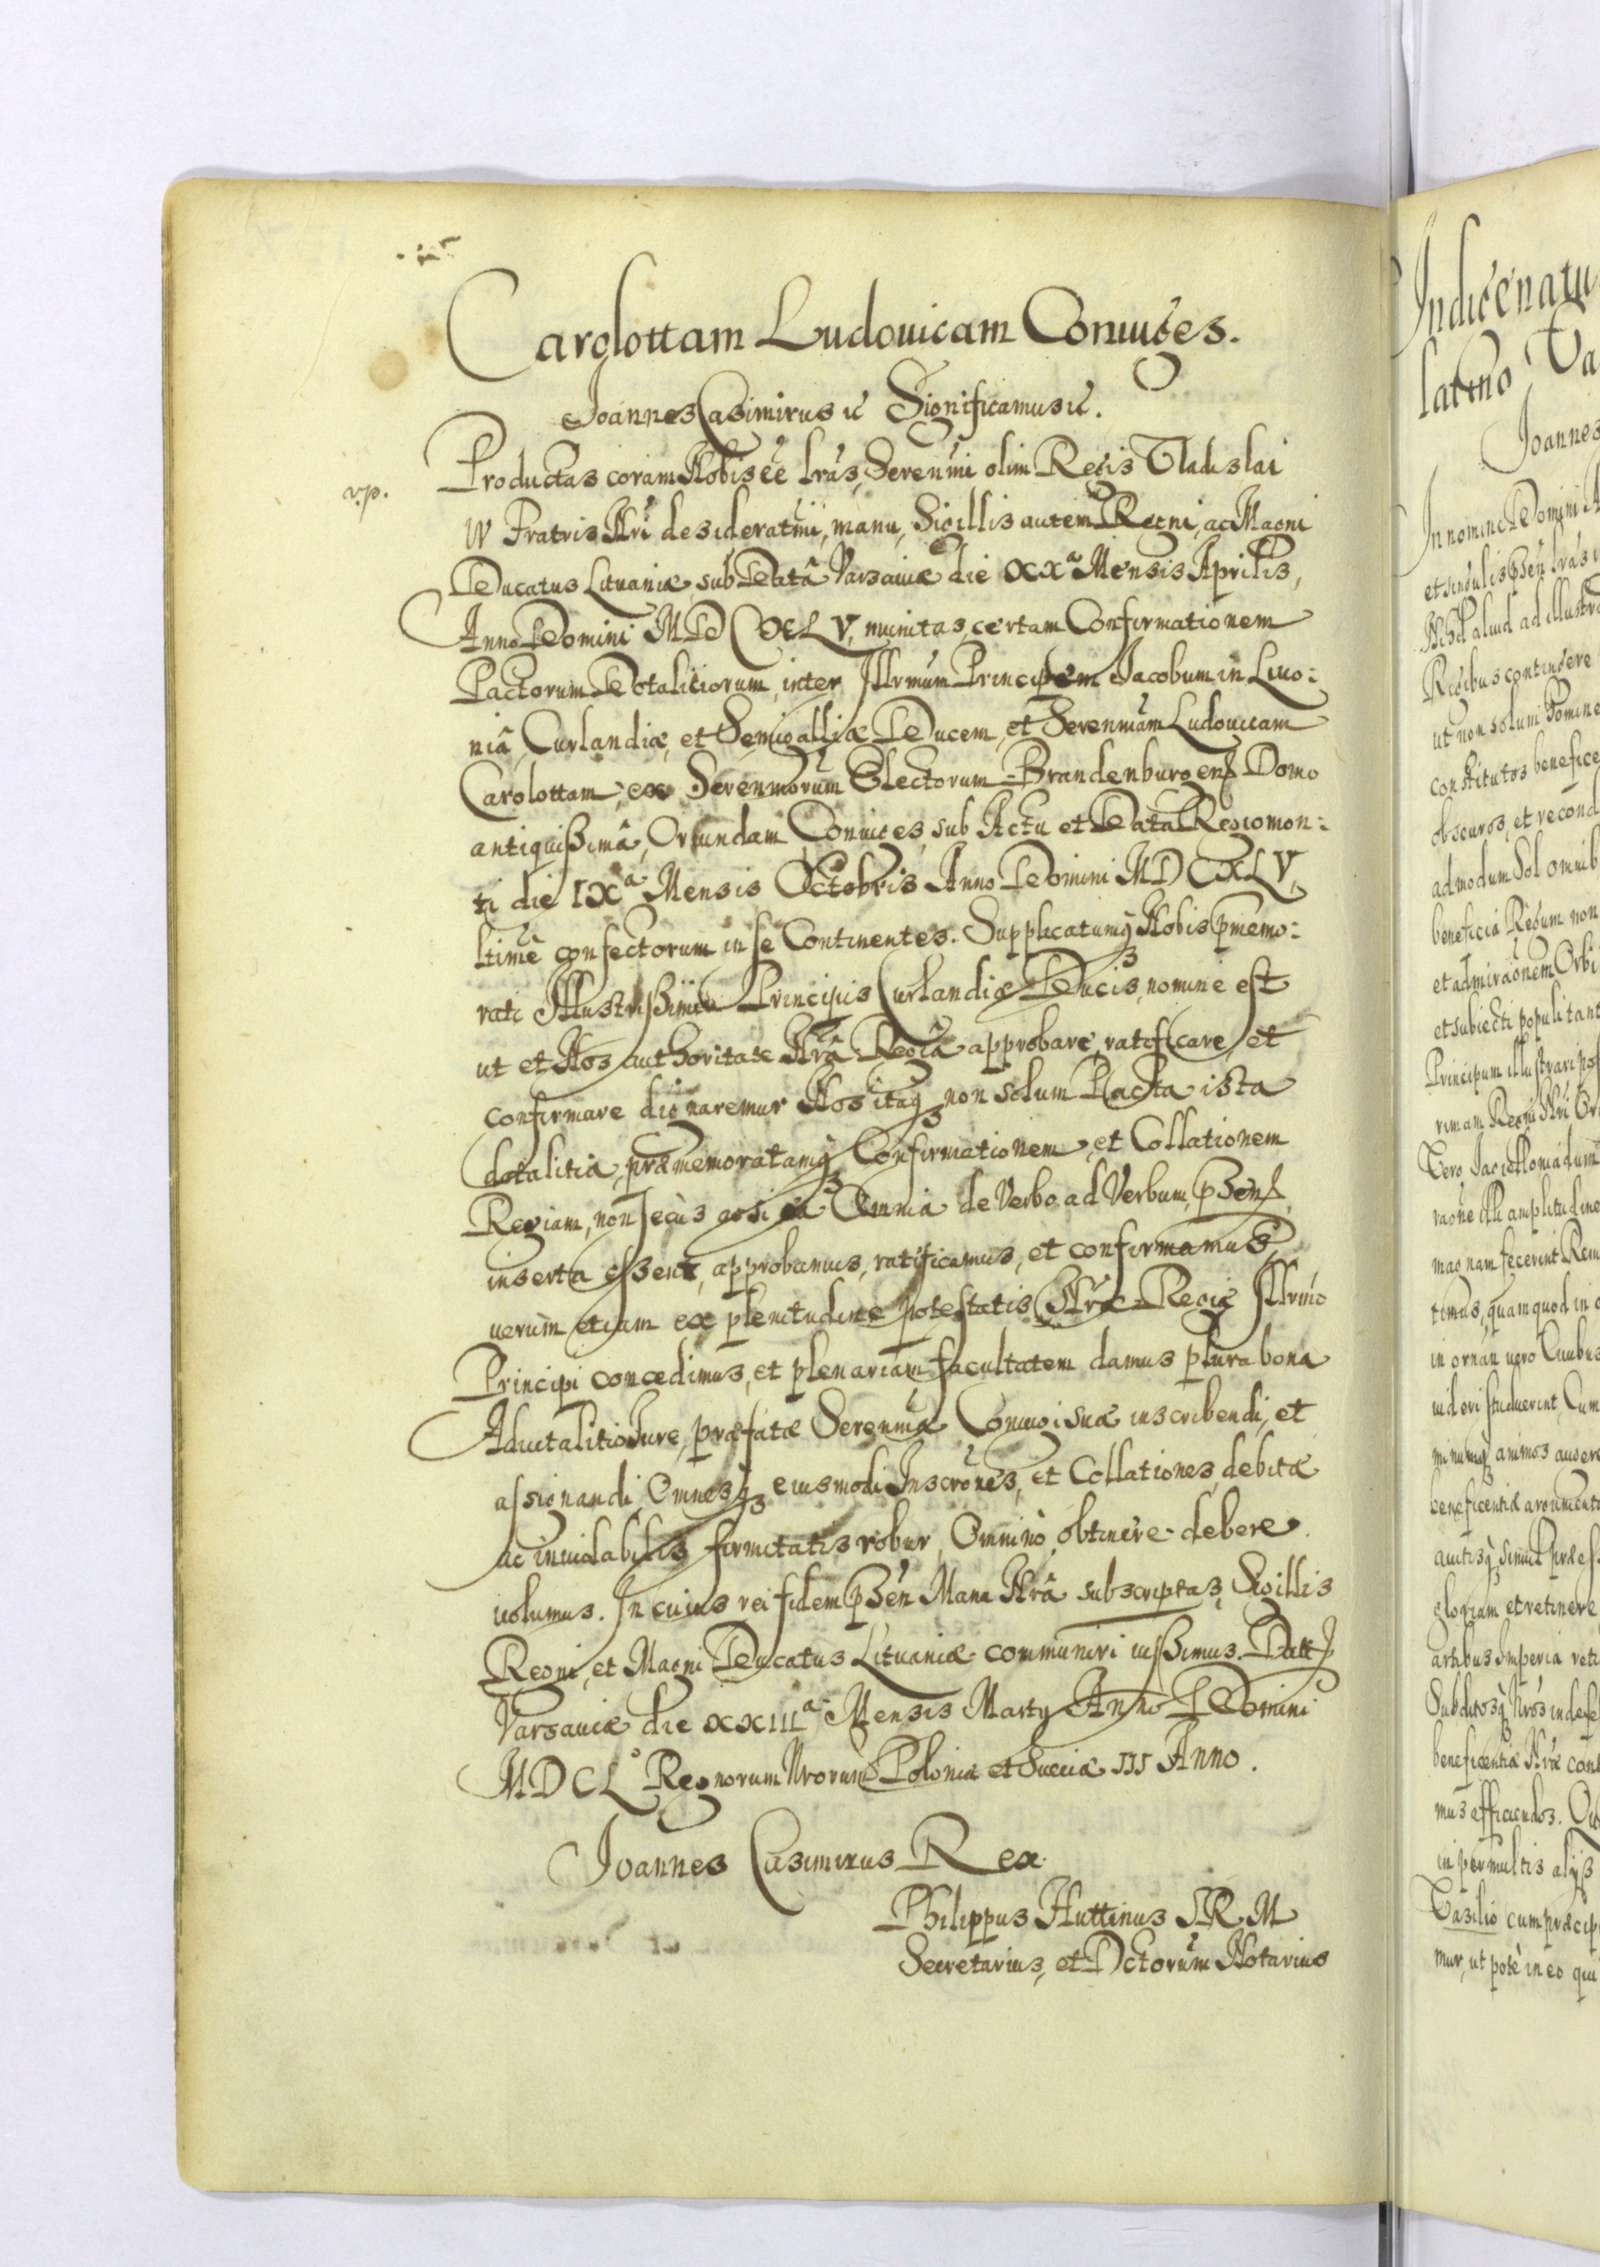 Carolottam Ludouicam Coniuges.
Joannes Casimirus &c Significamus &c.
v.p.
Productas coram Nobis eē lrās Serenmi olim Regis Vladislai
IV Fratris Nri desideratmi, manu, Sigillis autem Regni, ac Magni
Ducatus Lituaniæ, sub Datâ Varsauiæ die XXa Mensis Aprilis,
Anno Domini MDCXLV, munitas, certam Confirmationem
Pactorum Dotalitiorum, inter Illrmum Principem Jacobum in Liuo:
niâ, Curlandiæ, et Semigalliæ Ducem, et Serenmam Ludouicam
Carolottam, ex Serenmorum Electorum Brandenburgens Domo
antiquissimâ, Oriundam, Coniuges, sub Actu et Datâ Regiomon:
ti die IXa Mensis Octobris Anno Domini MDCXLV,
ltimè confectorum in se Continentes. Supplicatumq3 Nobis pmemo:
rati Illustrissimi Principis Curlandiæ Ducis, nomine est
ut et Nos authoritate Nrâ Regiâ approbare, ratificare, et
confirmare dignaremur Nos itaq3 non solum Pacta ista
dotalitia, præmemoratamq3 Confirmationem, et Collationem
Regiam, non secùs acsi ea Omnia de Verbo ad Verbum, pħens
inserta essent, approbamus, ratificamus, et confirmamus,
uerùm etiam ex plenitudine potestatis Nræ Regiæ Illrmo
Principi concedimus, et plenariam facultatem damus plura bona
Aduitalitio Jure, præfatæ Serenmæ Coniugi suæ inscribendi, et
assignandi, Omnesq3 eiusmodi Inscrōnes, et Collationes, debitæ
ac inuiolabilis firmitatis robur, Omninò, obtinere debere
uolumus. In cuius rei fidem pħen Manu Nrâ subscriptas, Sigillis
Regni, et Magni Ducatus Lituaniæ communiri iussimus. Datt
Varsauiæ die XXIIIa Mensis Martij Anno Domini
MDCLo Regnorum Nrorum Poloniæ et Sueciæ III Anno.
Joannes Casimirus Rex
Philippus Huttinus S R M
Secretarius, et Dctorum Notarius
Indigenatu
latino Va
Joannes
In nomine Domini A
et singulis pħen lrās
Nihil aliud ad illustra
Regibus contingere
ut non solum Homine
constitutos benefice
obscuros, et recond
admodum Sol omnib
beneficia Regum non
et admiraōnem Orbi
et subiecti populi tant
Principum illustrari pos
rimam Regni Nri Or
Vero Jagielloniadum
raōne illi amplitudine
magnam fecerint Rem
timus, quam quod in
in ornan uero Ciuibus
uideri studuerint, Cum
minumq3 animos augere
beneficentiæ argumento
auitisq3 simul Præes
gloriam et retinere
artibus Imperia reti
Subditosq3 Nros indefe
beneficentiæ Nræ cont
mus efficiendos.
in permultis alijs
Vasilio cum præcip
mur, ut potè in eo qui